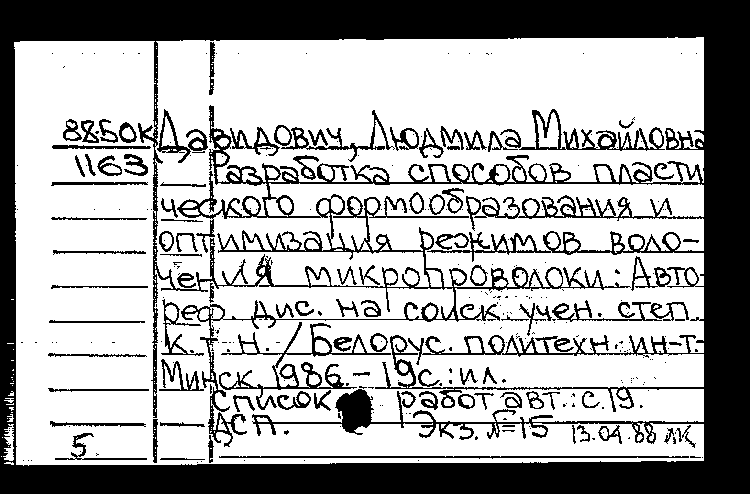 88-50К Давидович, Людмила Михайловна
1163 Разработка способов пласти
ческого формообразования и
оптимизация режимов воло-
чения микропроволоки: Авто-
реф. дис. на соиск. учен. степ.
к.т.н. / Белорус. политехн. ин-т.-
Минск, 1986. - 19с.: ил.
Список работ авт.: с.19.
ДСП. Экз. №15 13.04.88 ЛК
5